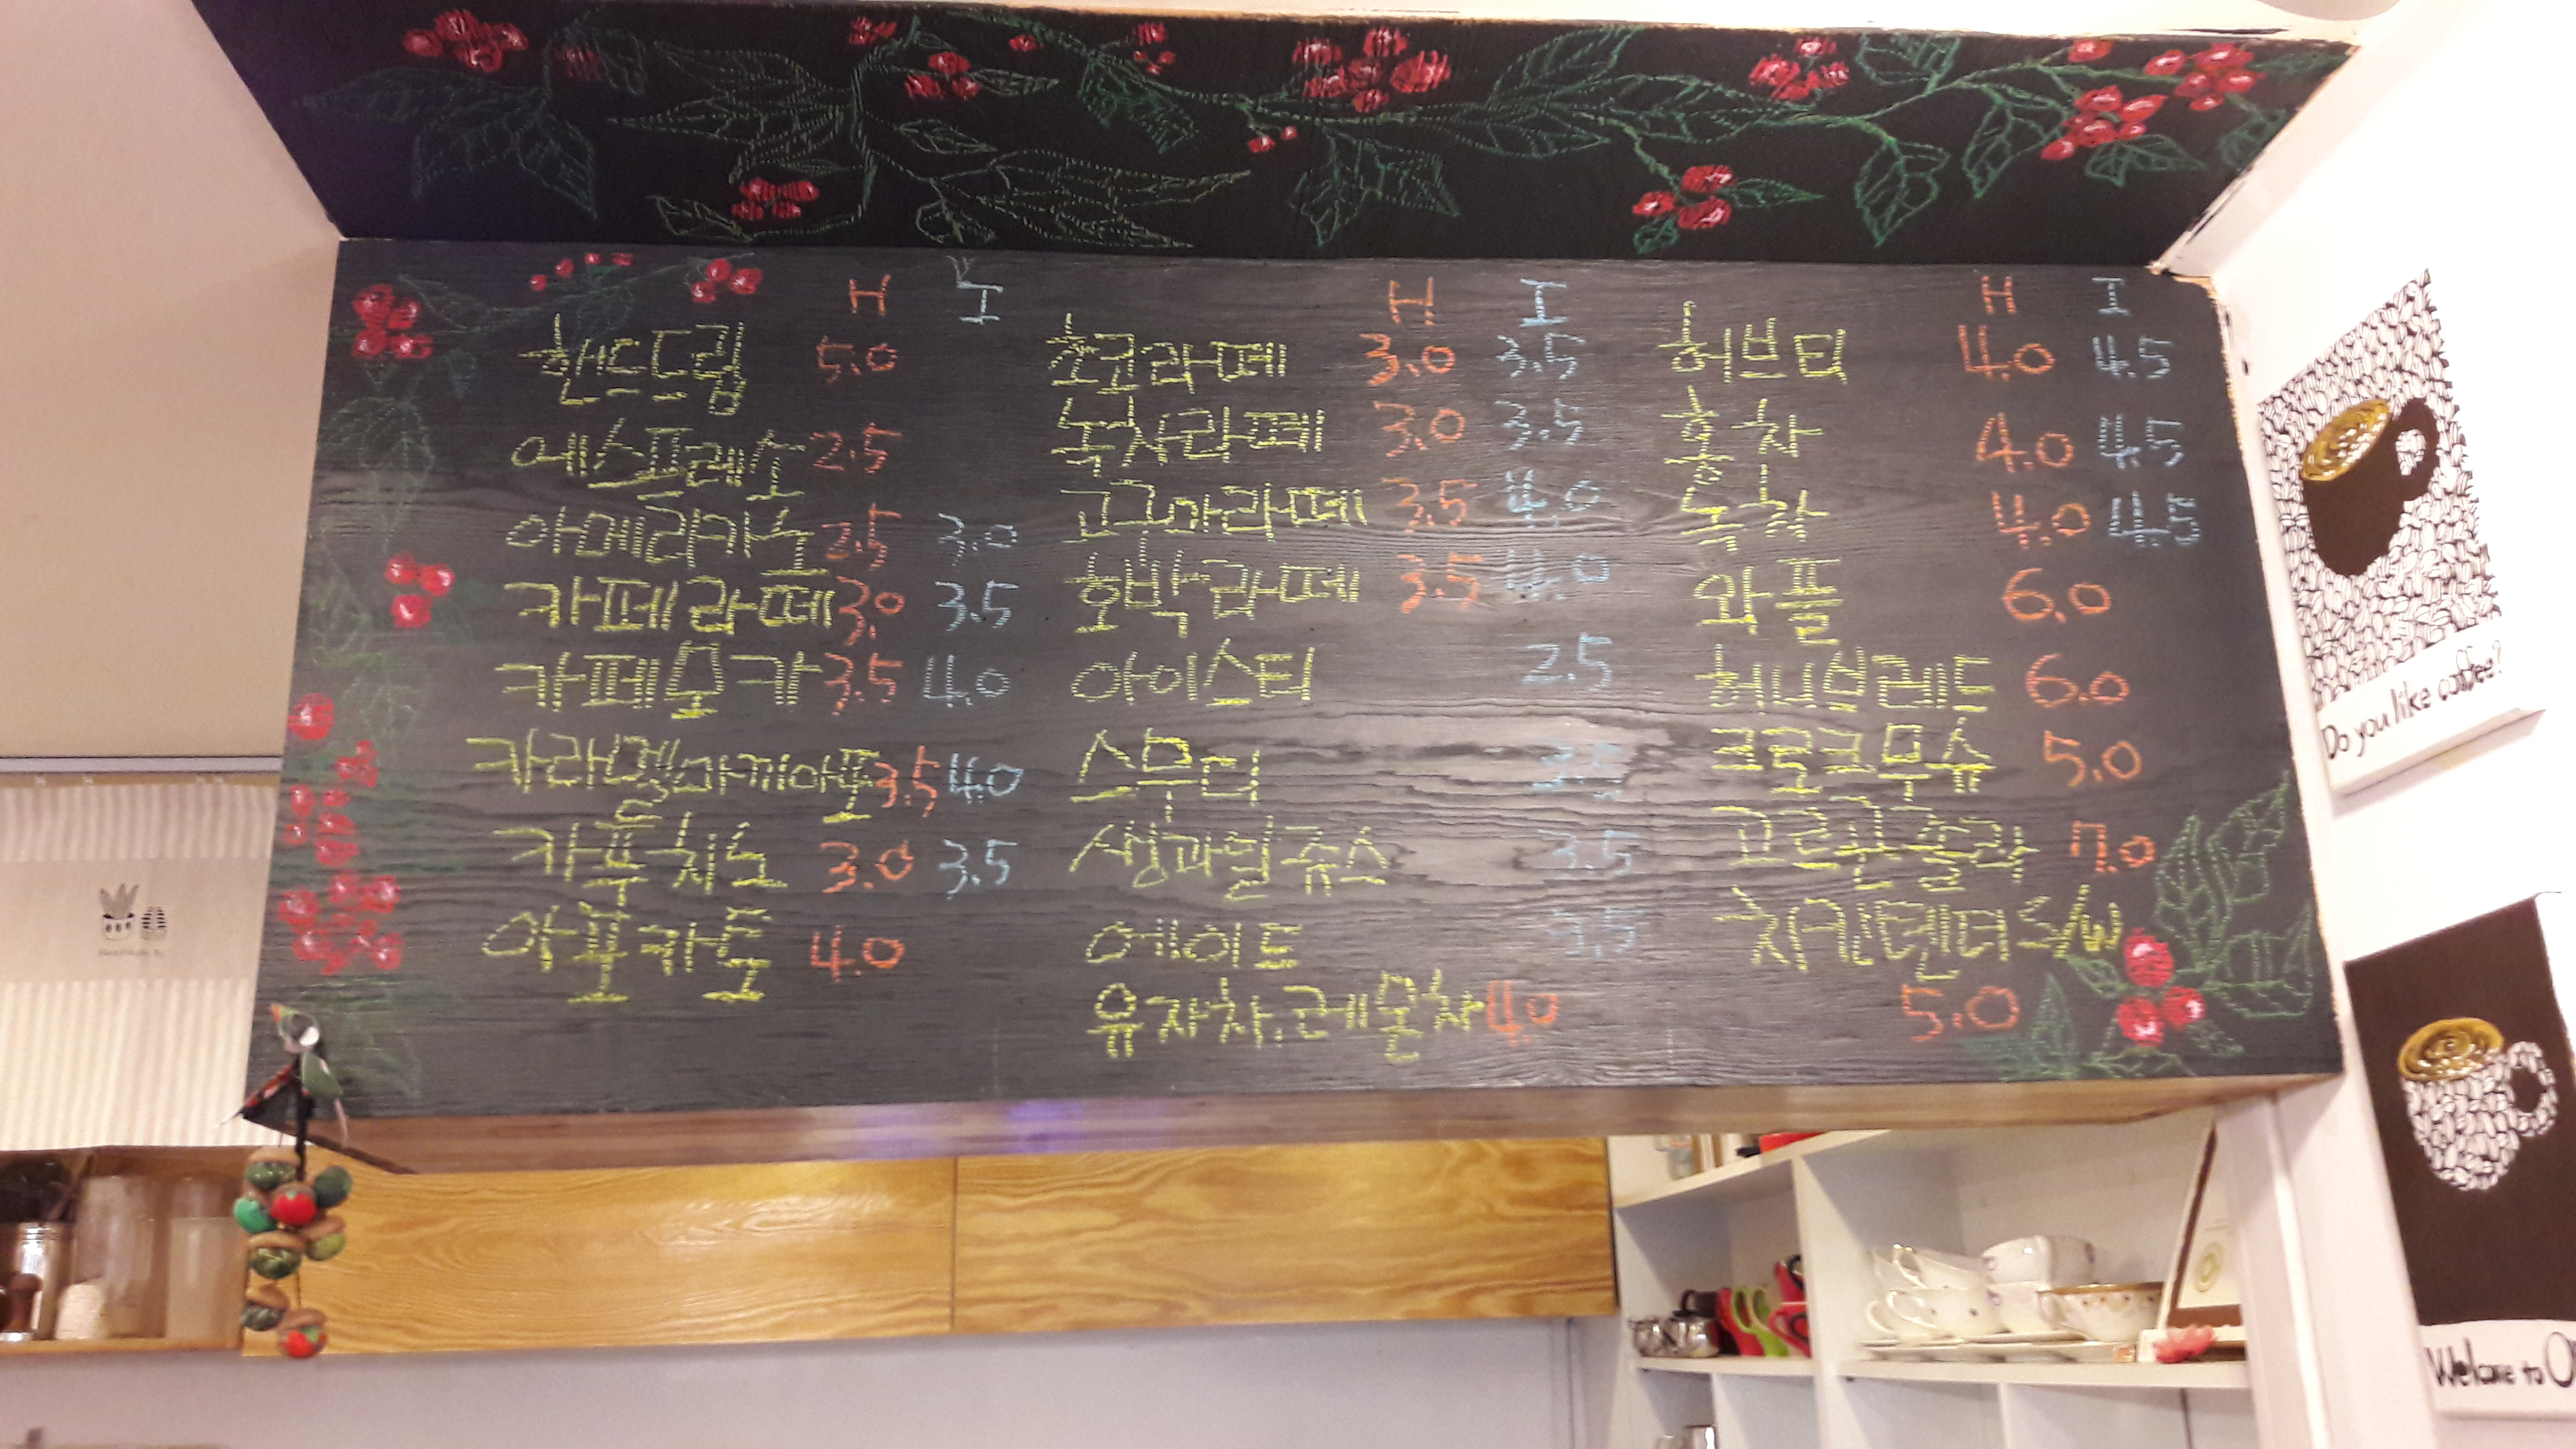 H I
핸드드립 5.0
에스프레소 2.5
아메리카노 2.5 3.0
카페라떼 3.0 3.5
카페모카 3.5 4.0
카라멜마끼아또 3.5 4.0
카푸치노 3.0 3.5
아포카토 4.0
H I
초코라떼 3.0 3.5
녹차라떼 3.0 3.5
고구마라떼 3.5 4.0
호박라떼 3.5 4.0
아이스티 2.5
스무디 3.5
생과일쥬스 3.5
에이드 3.5
유자차.레몬차 4.0
H I
허브티 4.0 4.5
홍차 4.0 4.5
녹차 4.0 4.5
와플 6.0
허니브레드 6.0
크로크무슈 5.0
고르곤졸라 7.0
5.0
Do you like coffee?
Welcome to